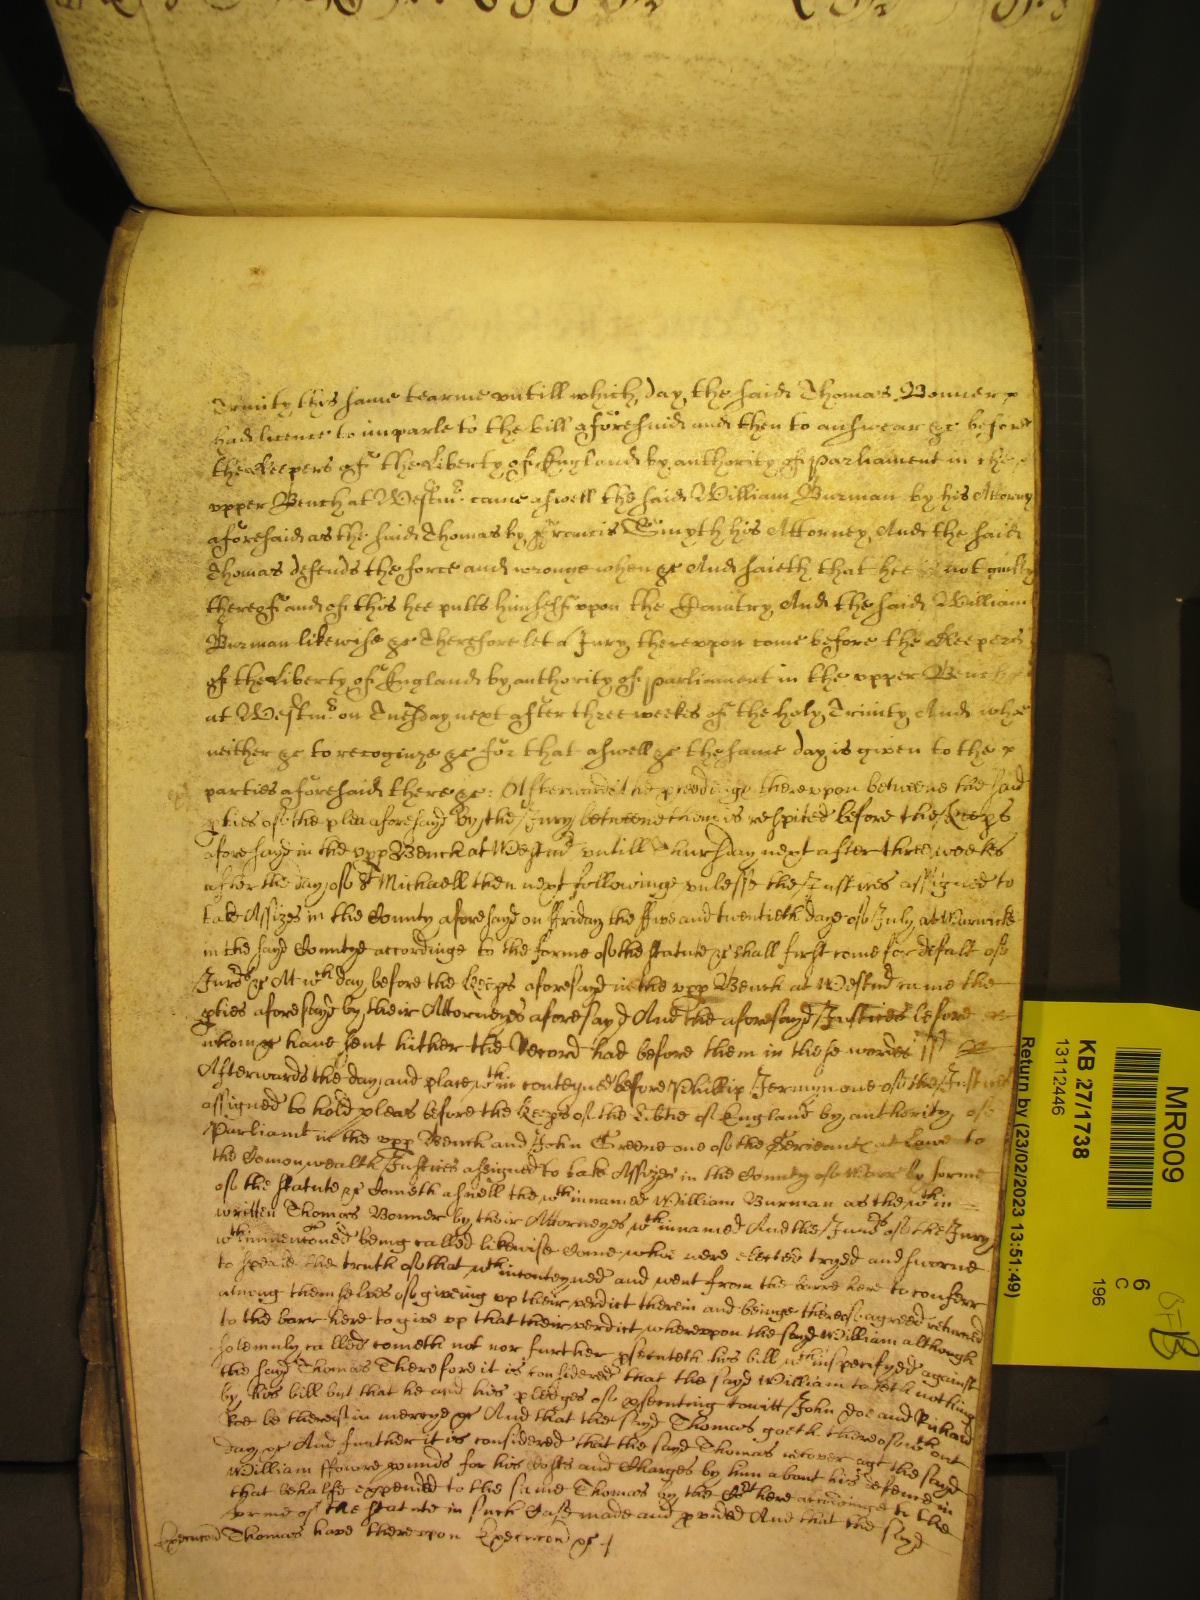 Trinity this same tearme untill which day the said Thomas Bonner
had licence to imparle to the bill aforesaid and then to answear &c before
the Keepers of the Liberty of England by authority of Parliament in the
upper Bench at Westmr. came aswell the said William Burman by his Attorny
aforesaid as the said Thomas by Francis Smyth his Attorney And the said
Thomas defends the force and wronge when &c And saieth that hee is not guilty
thereof and of this hee putts himself upon the Country And the said William
Burman likewise &c Therefore let a Jury thereupon come before the Keepers
of the Liberty of England by authority of parliament in the upper Bench
at Westmr. on Tuesday next after three weekes of the holy Trinity And whoe
neither &c to recoginze &c for that aswell &c the same day is given to the
parties aforesaid there &c: Afterwards the pceedings thereupon betweene the said
pties of the plea aforesayd By the Jury betweene them is respited before the Keeps
aforesayd in the upp Bench at Westmr untill Thursday next after three weekes
after the day of St Michaell then next followinge unlesse the Justices assigned to
take Assizes in the County aforesayd on Friday the ffive and twentieth daye of July at Warwicke
in the sayd Countye accordinge to the forme of the statute &c shall first come for defalt of
Jurors &c At wch day before the Keeps aforesayd in the upp Bench at Westmr came the
pties aforesayd by their Attorneyes aforesayd And the aforesayd Justices before
whome &c have sent hither the Record had before them in these wordes ss
Afterwards the day and place wthin conteyned before Phillip Jermyn one of the Justices
assigned to hold pleas before the Keeps of the Libtie of England by authority of
Parliamt in the upp Bench and John Greene one of the Serieants at Lawe to
the Comonwealth Justices assigned to take Assizes in the County of Warr by forme
of the statute &c Cometh aswell the wthinnamed William Burman as the wthin
written Thomas Bonner by their Attorneyes wthinnamed And the Jurors of the Jury
wthinmentoned being called likewise Come whoe were elected tryed and sworne
to speake the truth of that wthinconteyned and went from the barre here to conferr
among themselves of giveing up their verdict therein and beinge thereof agreed returned
to the barr here to give up that their verdict whereupon the sayd William although
solemnly called cometh not nor further psenteth his bill wthinspecifyed against
the sayd Thomas Therefore it is considered that the sayd William taketh nothing
by his bill but that he and his pledges of psecuting towitt John Doe and Richard
Roe be thereof in mercye &c And that the sayd Thomas goeth thereof wthout
day &c And further it is considered that the sayd Thomas recover agt the sayd
William ffoure pounds for his Costs and Charges by him about his defence in
that behalfe expended to the same Thomas by the Cort here accordinge to the
forme of the statute in such Case made and pvided And that the sayd
Execucon Thomas have thereupon Execucon &c
MR009
KB 27/1738
13112446
Return by (23/02/2023 13:51:49)
6
C
196